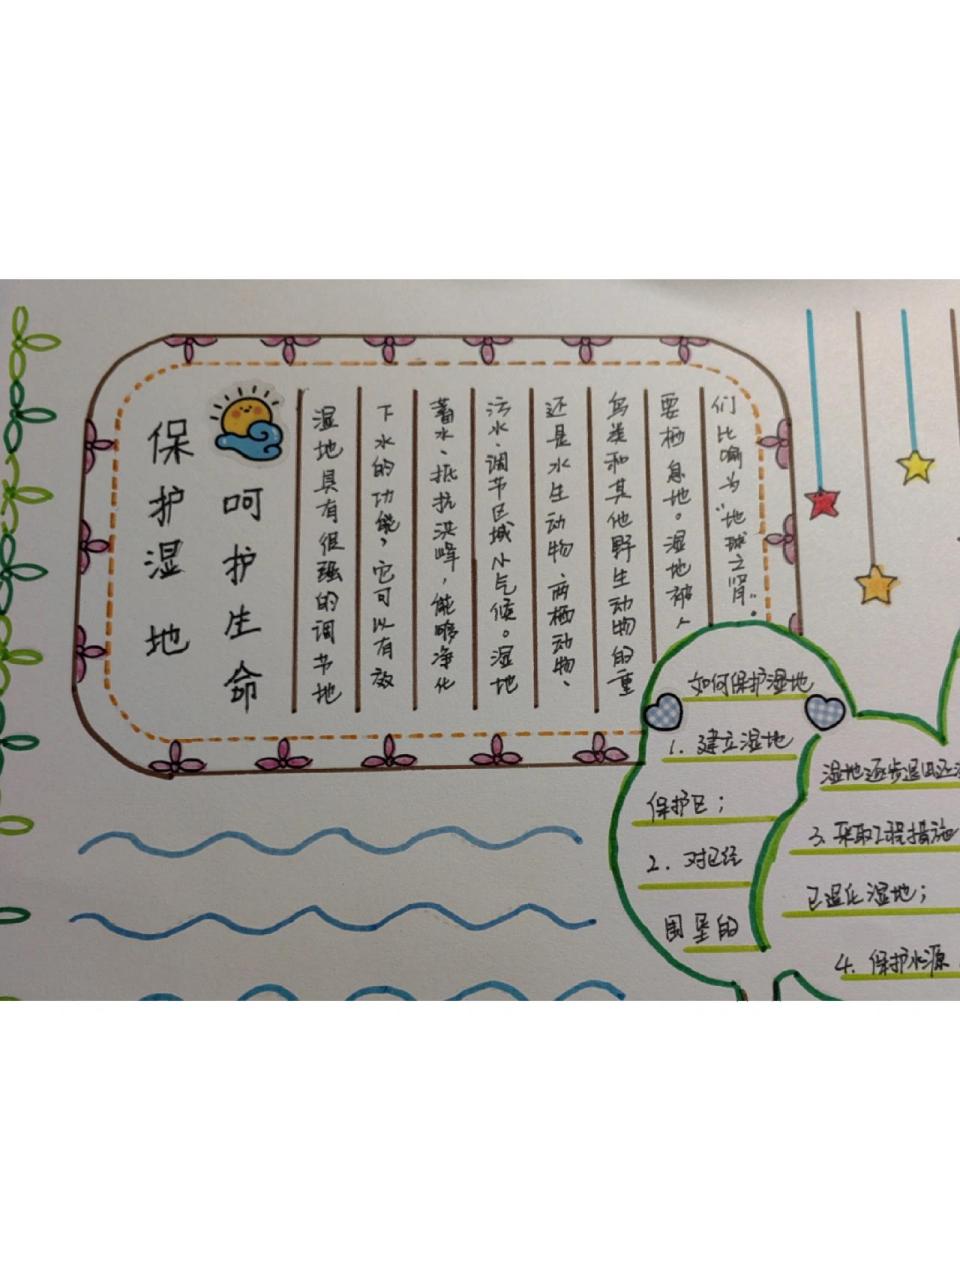 保护湿地
呵护生命
湿地具有很强的调节地
下水的功能，它可以有效
蓄水、抵抗洪峰，能够净化
污水、调节区域小气候。湿地
还是水生动物、两栖动物、
鸟类和其他野生动物的重
要栖息地。湿地被人
们比喻为“地球之肾”。
如何保护湿地
1.建立湿地
保护区；
2.对已经
围垦的
湿地逐步退田还
3.采取工程措施
已湿化湿地；
4.保护水源